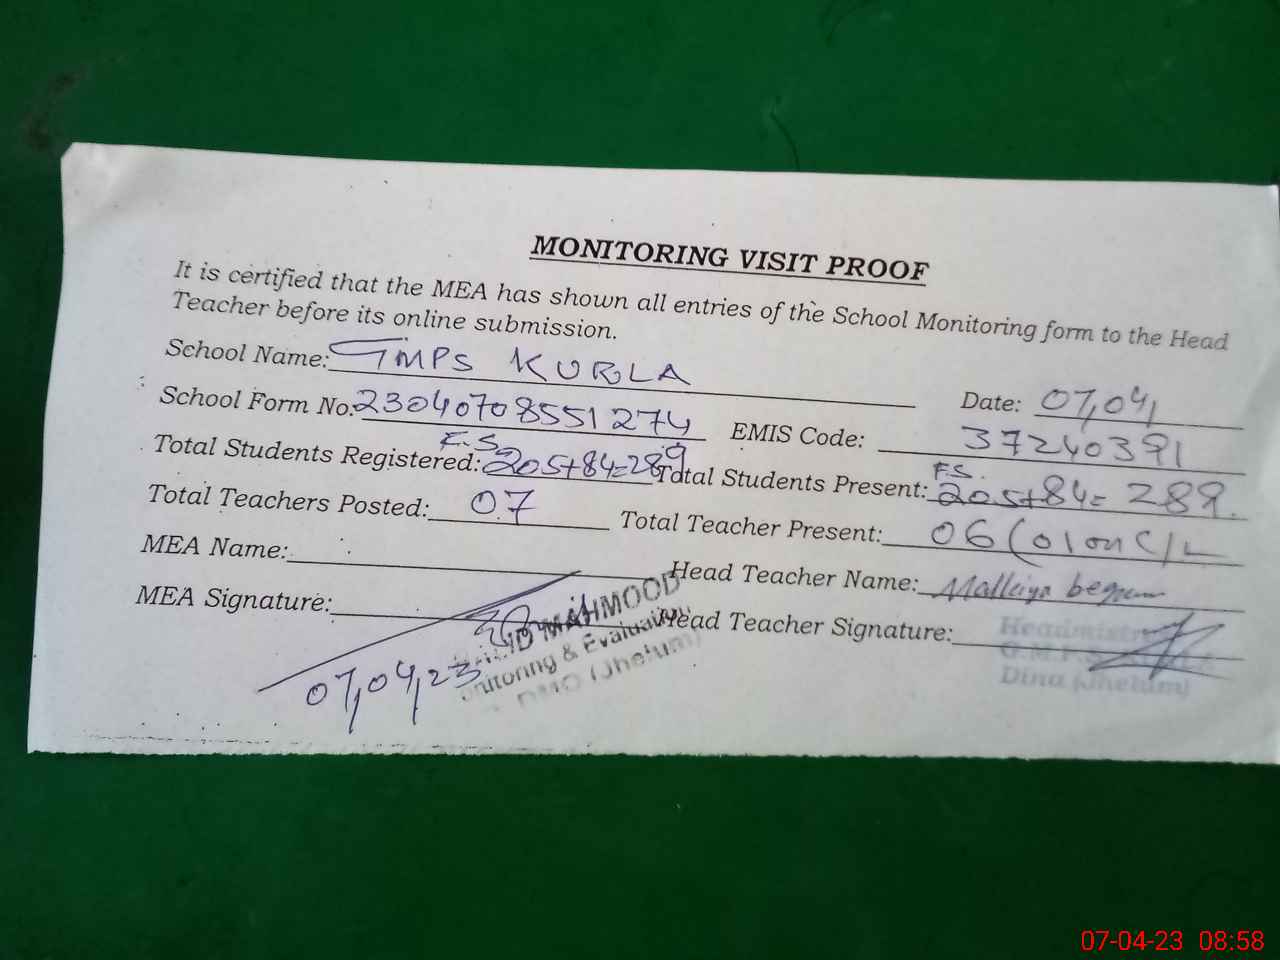 MONITORING VISIT PROOF
It is certified that the MEA has shown all entries of the School Monitoring form to the Head
Teacher before its online submission.
School Name: GMPS KURLA
Date: 07,04,
School Form No: 23040708551274 EMIS Code: 37240391
Total Students Registered: F.S. 205+84=289 Total Students Present: F.S. 205+84= 289.
Total Teachers Posted: 07 Total Teacher Present: 06 (01 on C/L
MEA Name: Head Teacher Name: begum
MEA Signature: Head Teacher Signature:
MAHMOOD
Monitoring & Evaluation
DMO (Jhelum)
07,04,23
Headmistress
Dina (Jhelum)
07-04-23 08:58